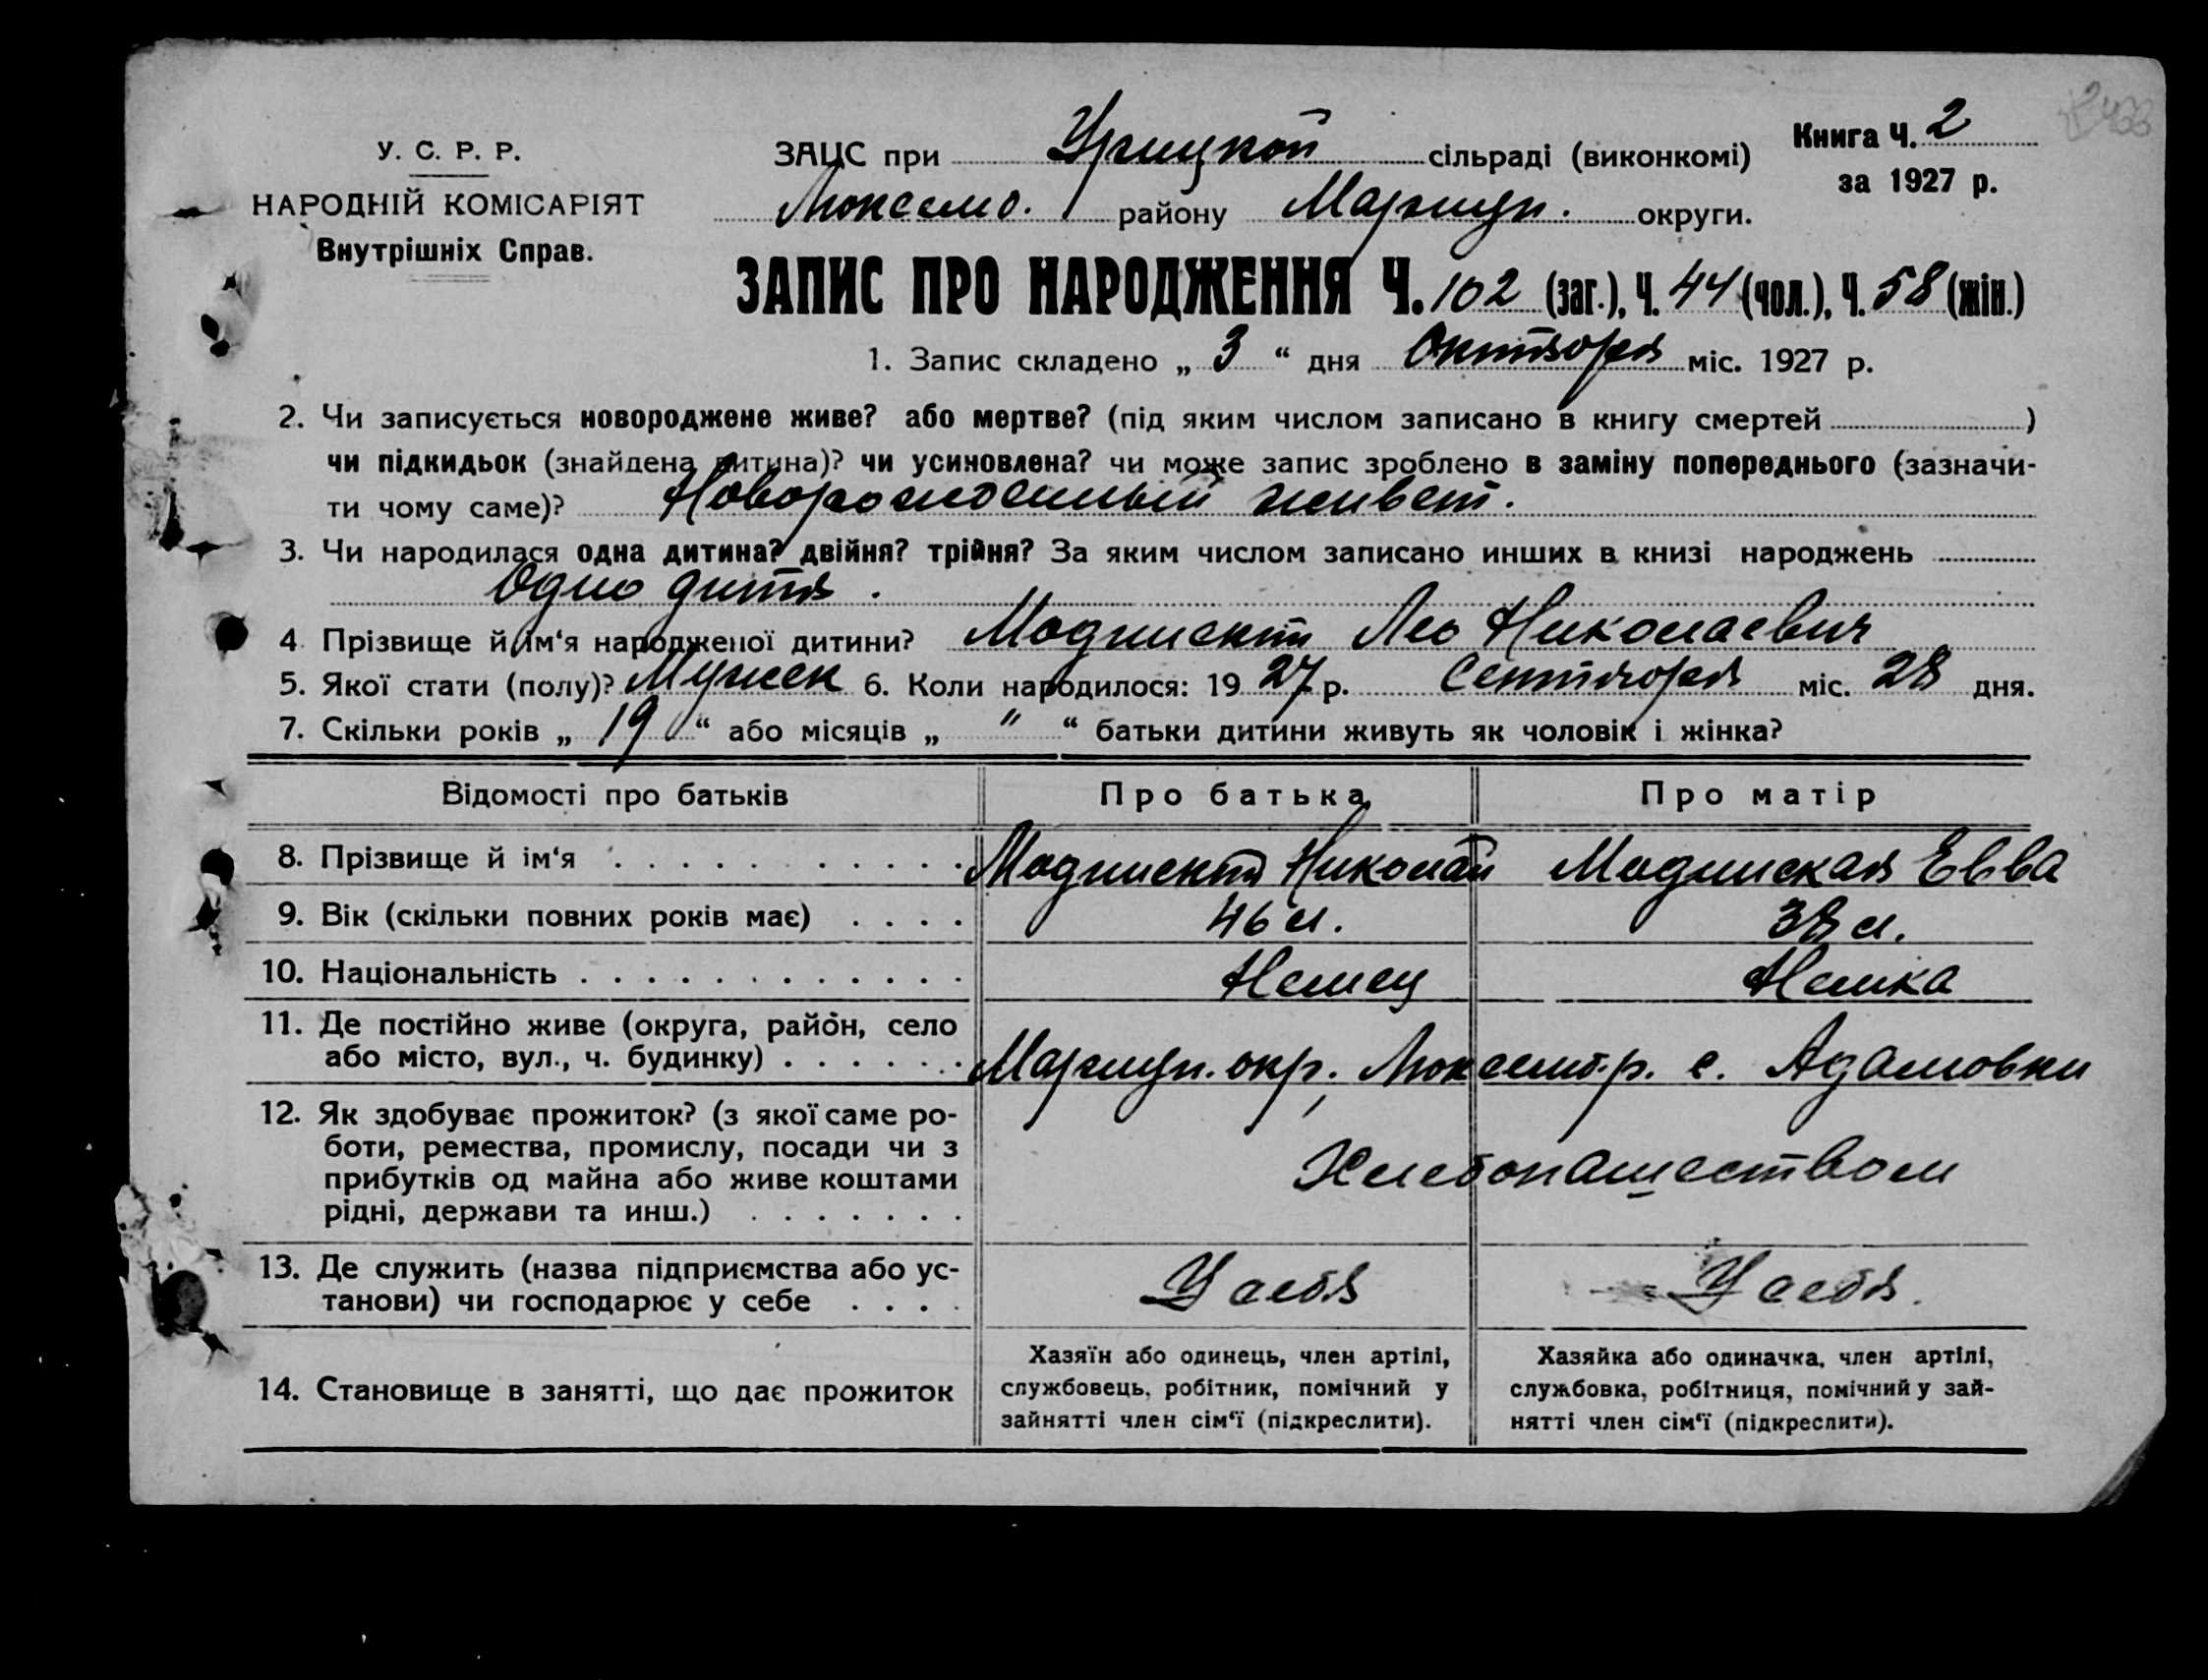 У. С. Р. Р.
НАРОДНІЙ КОМІСАРІЯТ
Внутрішніх Справ.
ЗАЦС при Урицкой сільраді (виконкомі)
Люксемб. району Мариуп. округи.
Книга Ч. 2
за 1927 р.
ЗАПИС ПРО НАРОДЖЕННЯ Ч. 102 (заг.), Ч. 44 (чол.), Ч. 58 (жін.)
1. Запис складено „ 3 “ дня Октября міс. 1927 р.
2. Чи записується новороджене живе? або мертве? (під яким числом записано в книгу смертей )
чи підкидьок (знайдена дитина)? чи усиновлена? чи може запис зроблено в заміну попереднього (зазначи-
ти чому саме)? Новорожденный живет.
3. Чи народилася одна дитина? двійня? трійня? За яким числом записано инших в книзі народжень
Одно дитя.
4 Прізвище й ім‘я народженої дитини? Лео Николаевич
5. Якої стати (полу)? Мужск 6. Коли народилося: 19 27 р. Сентября міс. 28 дня.
7. Скільки років „ 19 “ або місяців „ " “ батьки дитини живуть як чоловік і жінка?
Відомості про батьків Про батька Про матір
8. Прізвище й ім‘я Николай Евва
9. Вік (скільки повних років має) 46 л. 38 л.
10. Національність Немец Немка
11. Де постійно живе (округа, район, село
або місто, вул., ч. будинку) Мариуп. окр. Люксемб. р. с. Адамовки
12. Як здобуває прожиток? (з якої саме ро-
боти, ремества, промислу, посади чи з
прибутків од майна або живе коштами
рідні, держави та инш.) Хлебопашеством
13. Де служить (назва підприємства або ус-
танови) чи господарює у себе У себя У себя.
14. Становище в занятті, що дає прожиток
Хазяїн або одинець, член артілі,
службовець, робітник, помічний у
зайнятті член сім‘ї (підкреслити).
Хазяйка або одиначка, член артілі,
службовка, робітниця, помічний у зай-
нятті член сім‘ї (підкреслити).